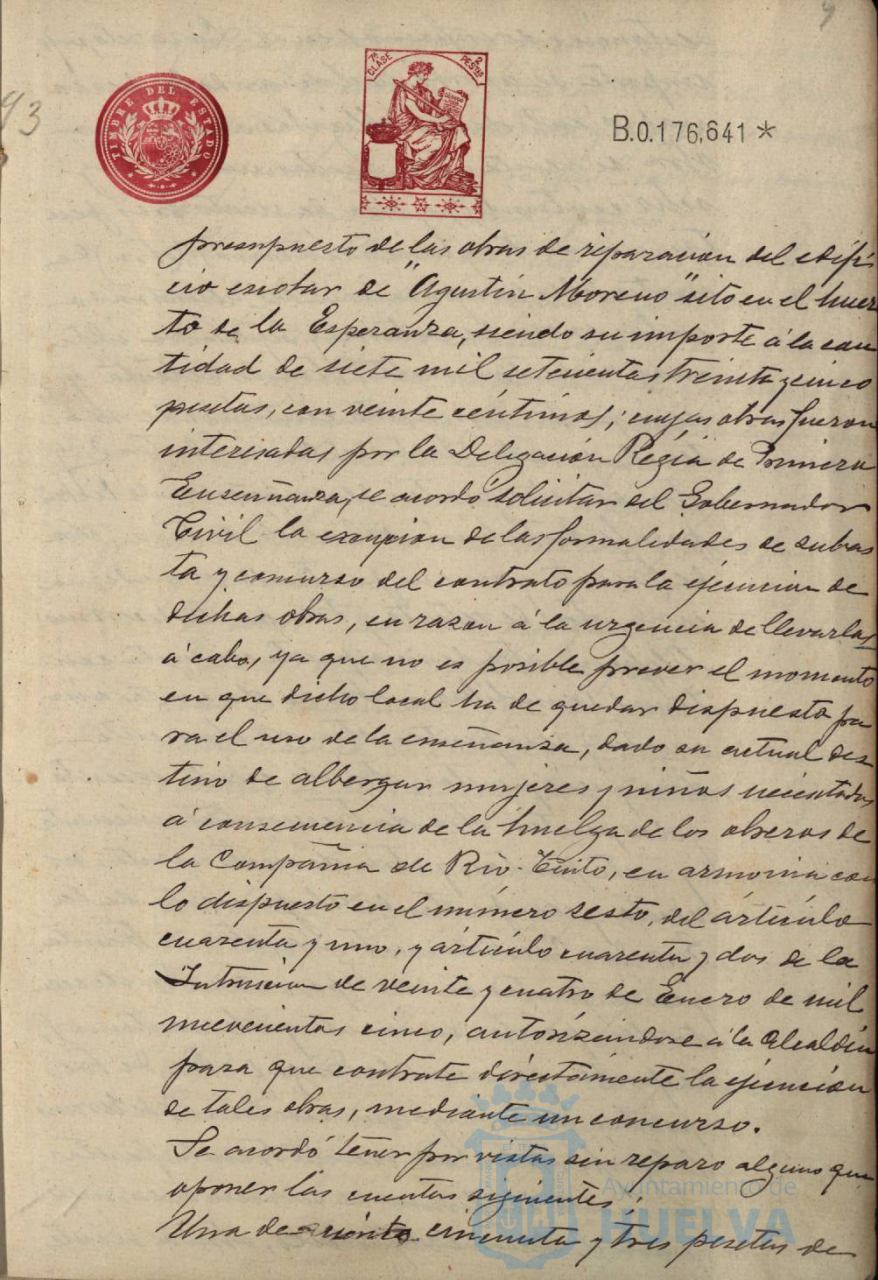 93
9
TIMBRE DEL ESTADO
7ª CLASE
2 PESTAS
B.0.176,641 *
presupuesto de las obras de reparación del edifi
cio escolar de "Agustín Moreno" sito en el huer
to de la Esperanza, siendo su importe á la can
tidad de siete mil setecientas treinta y cinco
pesetas, con veinte céntimos; cuyas obras fueron
interesadas por la Delegación Regia de Primera
Enseñanza, se acordó solicitar del Gobernador
Civil la exención de las formalidades de subas
ta y concurso del contrato para la ejecución de
dichas obras, en razon á la urgencia de llevarlas
á cabo, ya que no es posible prever el momento
en que dicho local ha de quedar dispuesto pa
ra el uso de la enseñanza, dado su actual des
tino de albergar mujeres y niños necesitados
á consecuencia de la huelga de los obreros de
la Compañia de Rio-Tinto, en armonia con
lo dispuesto en el número sesto, del artículo
cuarenta y uno, y artículo cuarenta y dos de la
Intrucion de veinte y cuatro de Enero de mil
nuevecientos cinco, autorizándose á la Alcaldía
para que contrate directamente la ejecución
de tales obras, mediante un concurso.
Se acordó tener por vistas sin reparo alguno que
oponer las cuentas siguientes:
Una de ciento cincuenta y tres pesetas de
Ayuntamiento de
HUELVA